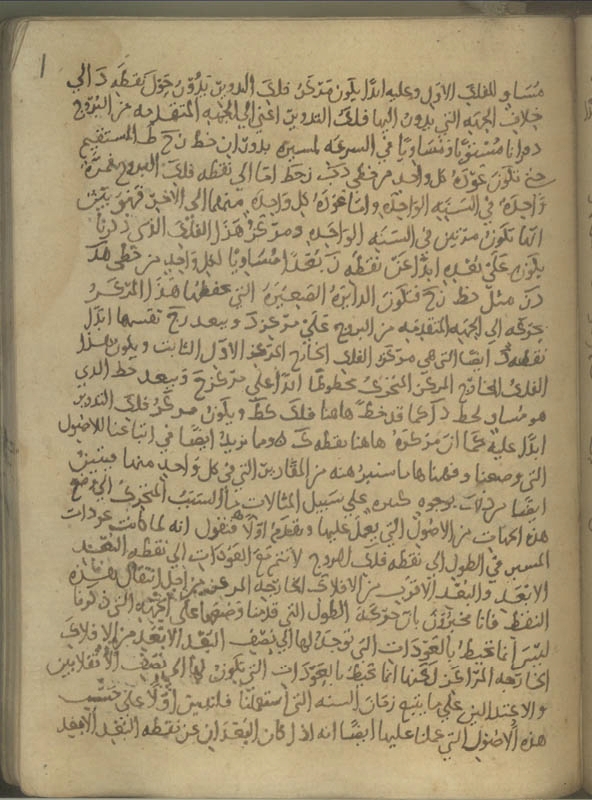 مساو للفلك الاول وعليه ابدا يكون مركز فلك التدوير يدور حول نقطه د الي
خلاف الجهه التي يدور اليها فلك التدوير اعني الي الجهه المتقدمه من البروج
دورانا مستويا مساويا في السرعه لمسيره يدور ان خط رح ط المستقيم
حتي تكون عودة كل واحد من خطي دك رحط اما الي نقطه فلك البروج فمرة
واحده في السنه الواحده واما عودة كل واحده منهما الي الاخر فهو بين
انها تكون مرتين في السنه الواحده ومركز هذا الفلك الذي ذكرنا
يكون علي بعده ابدا عن نقطه ر بعدا مساويا لكل واحد من خطي هد
در مثل خط رح فتكون الدايره الصغيره التي يخطها هذا المركز
بحركته الي الجهه المتقدمه من البروج علي مركز ر وببعد رح تقسمها ابدا
نقطه د ايضا التي هي مركز الفلك الخارج المركز الاول الثابت ويكون هذا
الفلك الخارج المركز المتحرك مخطوطا ابدا علي مركز ح وببعد خط الذي
هو مساو لخط د ا كما قد خط هاهنا فلك كط ويكون مركز فلك التدوير
ابدا عليه كما ان مركزه هاهنا نقطه ك وما نزيدك ايضا في اتباعنا للاصول
التي وضعنا وفهمناها ما سنبينه من المقادير التي في كل واحد منها فيتبين
ايضا من ذلك بوجوه كثيره علي سبيل المثالات السبب المتحرك الي وضع
هذه الجهات من الاصول التي يعمل عليها ونقدم اولا فنقول انه لما كانت عودات
المسير في الطول الي نقطه فلك البروج لا تتم مع العودات الي نقطه البعد
الابعد والبعد الاقرب من الافلاك الخارجه المركز من اجل انتقال هذه
النقط فانا مخبرون بان حركه الطول التي قدمنا وضعها علي الجهه التي ذكرنا
ليس انما تحيط بالعودات التي توجد لها الي نصف البعد الابعد من الافلاك
الخارجه المراكز لكنها انما تحيط بالعودات التي تكون لها الي نصف الانقلابين
والاعتدالين علي ما يتبع زمان السنه التي استعملنا فلنبين اولا علي حسب
هذه الاصول التي عملنا عليها ايضا انه اذا كان البعدان عن نقطه البعد الابعد